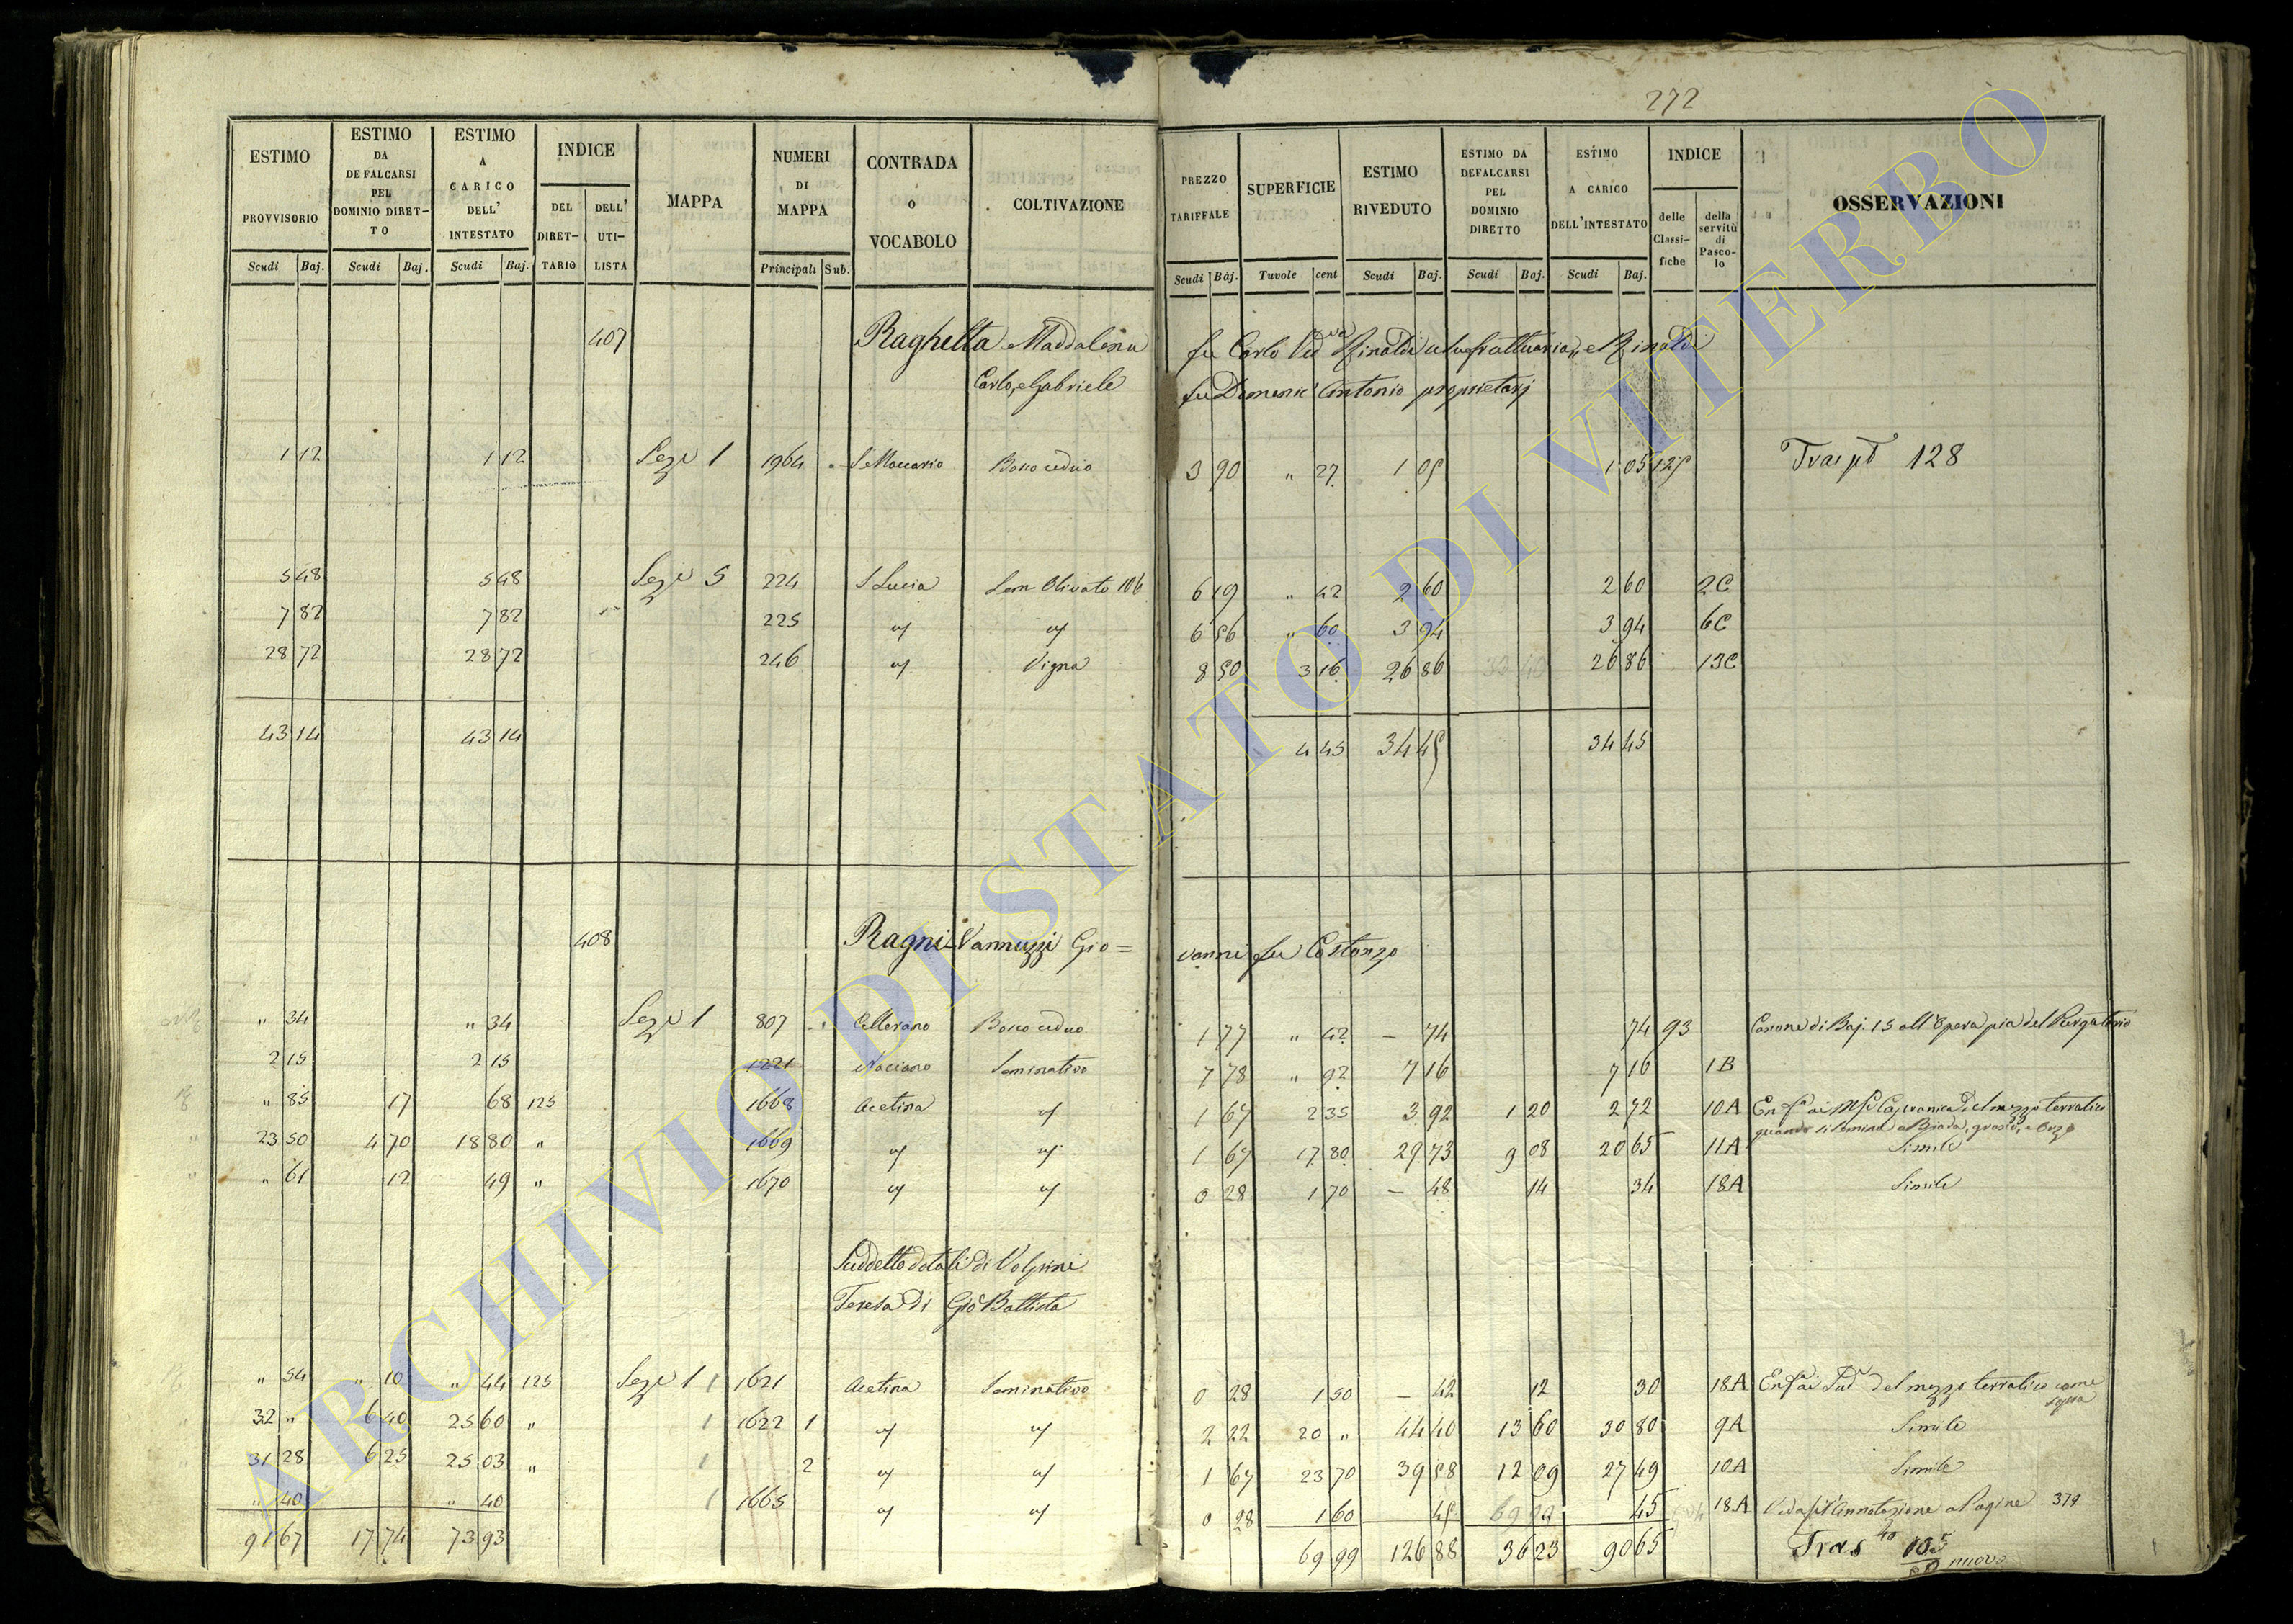 272
ESTIMO PROVVISORIO Scudi Baj.
ESTIMO DA DEFALCARSI PEL DOMINIO DIRETTO Scudi Baj.
ESTIMO A CARICO DELL' INTESTATO Scudi Baj.
INDICE DEL DIRETTARIO DELL' UTILISTA
MAPPA
NUMERI DI MAPPA Principali Sub.
CONTRADA O VOCABOLO
COLTIVAZIONE
PREZZO TARIFFALE Scudi Baj.
SUPERFICIE Tavole cent
ESTIMO RIVEDUTO Scudi Baj.
ESTIMO DA DEFALCARSI PEL DOMINIO DIRETTO Scudi Baj.
ESTIMO A CARICO DELL'INTESTATO Scudi Baj.
INDICE delle Classifiche della servitù di Pascolo
OSSERVAZIONI
407 Raghetta Maddalena fu Carlo Ved va Rinaldi usufruttuaria, e Rinaldi
Carlo, e Gabriele fu Domenic' Antonio proprietarj
1 12 1 12 Seze 1 1964 S Maccario Bosco ceduo 3 90 " 27 1 05 1 05 125 Trasp to 128
5 48 5 48 Seze 5 224 S Lucia Sem Olivato 106 6 19 " 42 2 60 2 60 2C
7 82 7 82 225 6 56 " 60 3 94 3 94 6C
28 72 28 72 246 Vigna 8 50 3 16 26 86 26 86 13C
43 14 43 14 4 45 34 45 34 45
408 Ragni Vannuzzi Gio= vanni fu Costanzo
" 34 " 34 Seze 1 807 Cellerano Bosco ceduo 1 77 " 42 – 74 74 93 Canone di Baj. 15 all'Opera pia del Purgatorio
2 15 2 15 1221 Naciano Seminativo 7 78 " 92 7 16 7 16 1B
" 85 17 68 125 1668 Acetina 1 67 2 35 3 92 1 20 2 72 10A Capranica del mezzo terratico
quando si semina a Biada, grano, e Orzo
23 50 4 70 18 80 " 1669 1 67 17 80 29 73 9 08 20 65 11A Simile
" 61 12 49 " 1670 0 28 1 70 – 48 14 34 18A Simile
Suddetto dotali di Volpini
Teresa di Gio Battista
" 54 " 10 " 44 125 Seze 1 1 1621 Acetina Seminativo 0 28 1 50 – 42 12 30 18A del mezzo terratico come sopra
32 " 6 40 25 60 " 1 1622 1 2 22 20 " 44 40 13 60 30 80 9A Simile
31 28 6 25 25 03 " 1 2 1 67 23 70 39 58 12 09 27 49 10A Simile
" 40 " 40 1 1665 0 28 1 60 45 45 18A Vedasi l'Annotazione a Pagine 379
91 67 17 74 73 93 69 99 126 88 36 23 90 65 Tras to 105
nuovo
ARCHIVIO DI STATO DI VITERBO